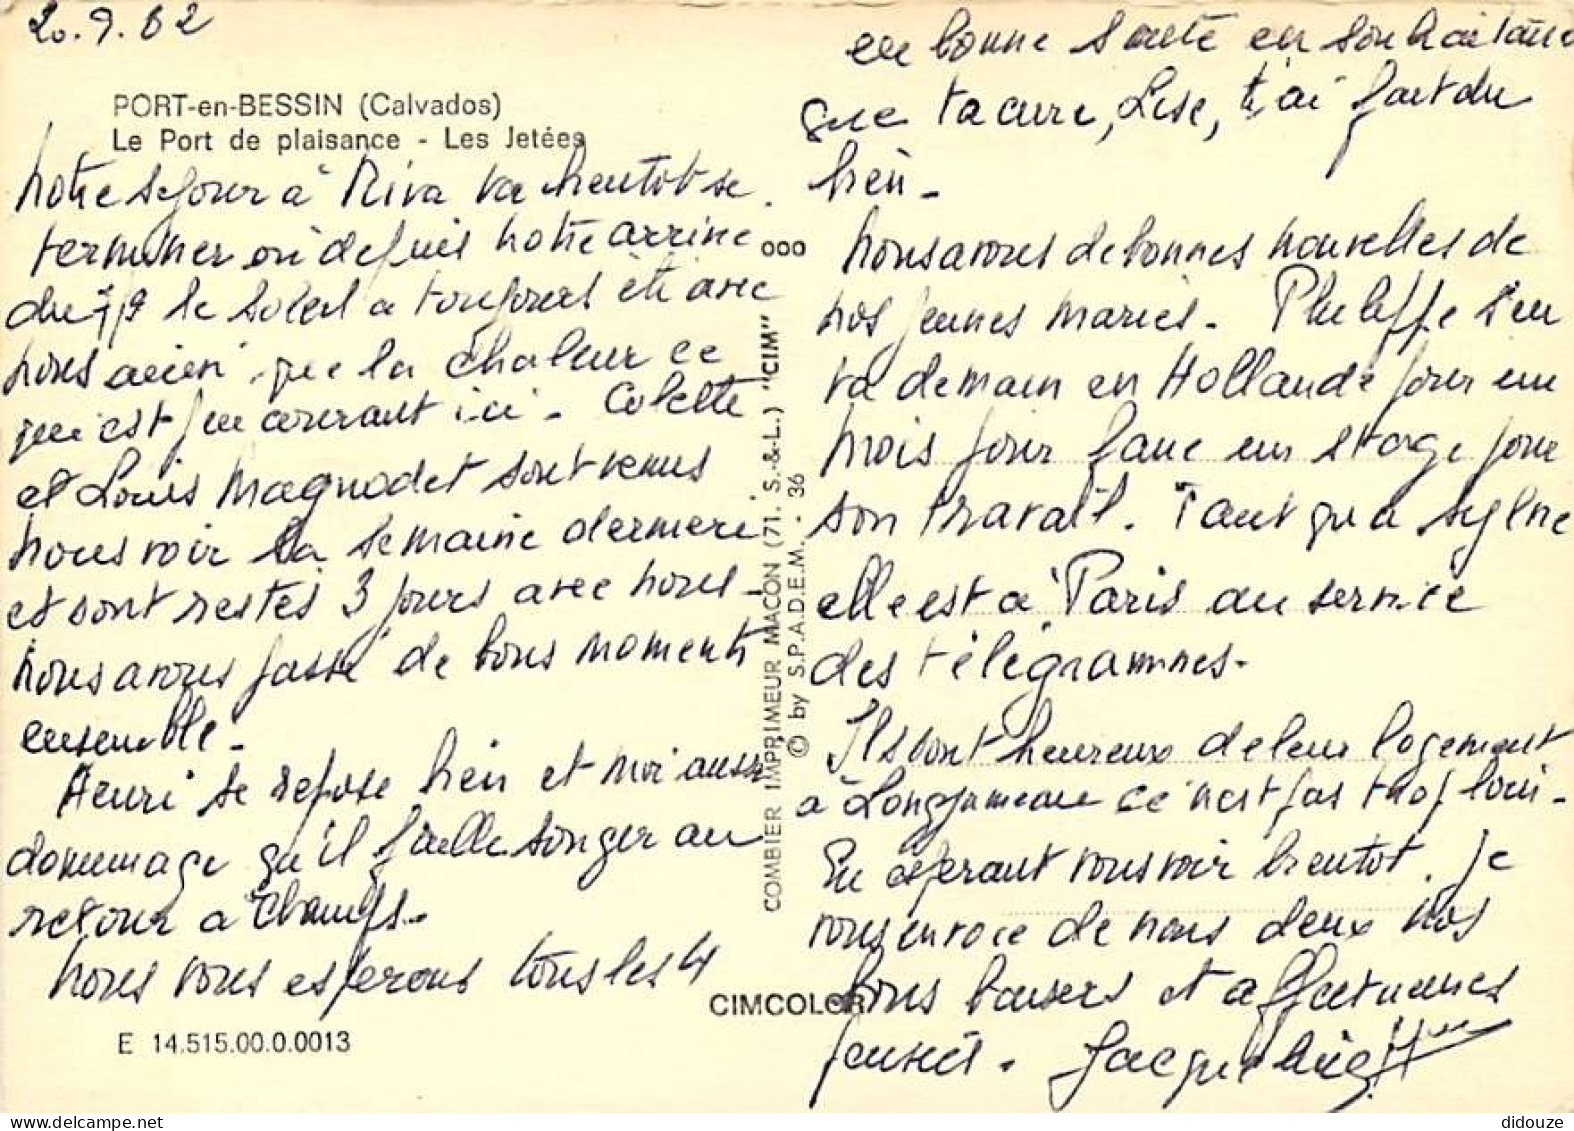 20.9.82
PORT-en-BESSIN (Calvados)
Le Port de plaisance - Les Jetées
Notre séjour à Riva va bientôt se
terminer où depuis notre arrivée
du 7/9 le soleil a toujours été avec
nous ainsi que la chaleur ce
qui est peu courant ici - Colette
et Louis Magnodet sont venus
nous voir la semaine dernière
et sont restés 3 jours avec nous -
nous avons passé de bons moments
ensemble -
Henri se repose bien et moi aussi
dommage qu'il faille songer au
retour à Champs..
Nous vous espérons tous les 4
E 14.515.00.0.0013
COMBIER IMPRIMEUR MACON (71. S.-&-L.) "CIM"
© by S.P.A.D.E.M. - 36
CIMCOLOR
en bonne santé en souhaitant
que ta cure, Lise, t'ai fait du
bien -
Nous avons de bonnes nouvelles de
nos jeunes mariés - Philippe s'en
va demain en Hollande pour un
mois pour faire un stage pour
son travail. Tant qu'a Sylvie
elle est à Paris au service
des télégrammes -
Ils sont heureux de leur logement
à Longjumeau ce n'est pas trop loin -
En espérant vous voir bientôt. Je
vous envoie de nous deux nos
bons baisers et affectueuses
pensées - Jacqueline
didouze